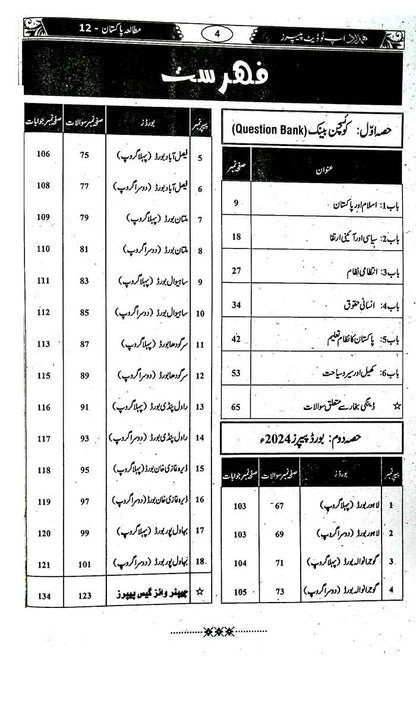 مطالعہ پاکستان - 12
4
اپ ٹو ڈیٹ پیپرز
فہرست
حصہ اوّل: کوئسچن بینک (Question Bank)
عنوان صفحہ نمبر
باب 1: اسلام اور پاکستان 9
باب 2: سیاسی اور آئینی ارتقا 18
باب 3: انتظامی نظام 27
باب 4: انسانی حقوق 34
باب 5: پاکستان کا نظامِ تعلیم 42
باب 6: کھیل اور سیر و سیاحت 53
☆ ڈینگی بخار سے متعلق سوالات 65
حصہ دوم: بورڈ پیپرز 2024ء
پیپر نمبر بورڈز صفحہ نمبر سوالات صفحہ نمبر جوابات
1 لاہور بورڈ (پہلا گروپ) 67 103
2 لاہور بورڈ (دوسرا گروپ) 69 103
3 گوجرانوالہ بورڈ (پہلا گروپ) 71 104
4 گوجرانوالہ بورڈ (دوسرا گروپ) 73 105
پیپر نمبر بورڈز صفحہ نمبر سوالات صفحہ نمبر جوابات
5 فیصل آباد بورڈ (پہلا گروپ) 75 106
6 فیصل آباد بورڈ (دوسرا گروپ) 77 108
7 ملتان بورڈ (پہلا گروپ) 79 109
8 ملتان بورڈ (دوسرا گروپ) 81 110
9 ساہیوال بورڈ (پہلا گروپ) 83 111
10 ساہیوال بورڈ (دوسرا گروپ) 85 112
11 سرگودھا بورڈ (پہلا گروپ) 87 113
12 سرگودھا بورڈ (دوسرا گروپ) 89 115
13 راولپنڈی بورڈ (پہلا گروپ) 91 116
14 راولپنڈی بورڈ (دوسرا گروپ) 93 117
15 ڈیرہ غازی خان بورڈ (پہلا گروپ) 95 118
16 ڈیرہ غازی خان بورڈ (دوسرا گروپ) 97 119
17 بہاولپور بورڈ (پہلا گروپ) 99 120
18 بہاولپور بورڈ (دوسرا گروپ) 101 121
☆ چیپٹر وائز گیس پیپرز 123 134